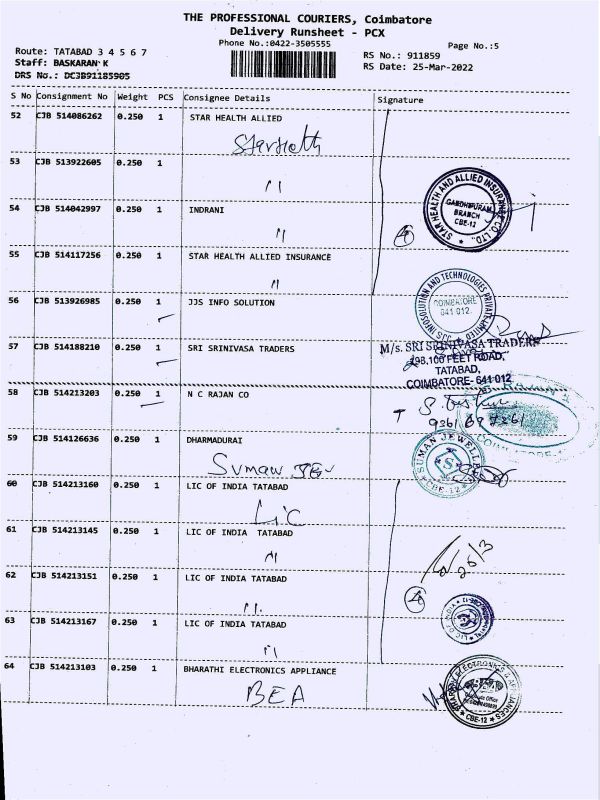 THE PROFESSIONAL COURIERS, Coimbatore
Delivery Runsheet - PCX
Phone No.:0422-3505555
Page No.:5
Route: TATABAD 3 4 5 6 7
Staff: BASKARAN K
DRS No.: DC3B91185905
RS No.: 911859
RS Date: 25-Mar-2022
S No Consignment No Weight PCS Consignee Details Signature
52 CJB 514086262 0.250 1 STAR HEALTH ALLIED
53 CJB 513922605 0.250 1
〃
STAR HEALTH AND ALLIED INSURANCE CO. LTD.
GANDHIPURAM
BRANCH
CBE-12
54 CJB 514042997 0.250 1 INDRANI
〃
4
55 CJB 514117256 0.250 1 STAR HEALTH ALLIED INSURANCE
〃
56 CJB 513926985 0.250 1 JJS INFO SOLUTION
JJS INFOSOLUTION AND TECHNOLOGIES PRIVATE LIMITED
COIMBATORE
641 012
57 CJB 514188210 0.250 1 SRI SRINIVASA TRADERS
M/s. SRI SRINIVASA TRADERS
198,100 FEET ROAD,
TATABAD,
COIMBATORE- 641 012
58 CJB 514213203 0.250 1 N C RAJAN CO
59 CJB 514126636 0.250 1 DHARMADURAI
Suman
SUMAN JEWELLERS
CBE-12
60 CJB 514213160 0.250 1 LIC OF INDIA TATABAD
LIC
61 CJB 514213145 0.250 1 LIC OF INDIA TATABAD
〃
25/3
62 CJB 514213151 0.250 1 LIC OF INDIA TATABAD
〃
4
63 CJB 514213167 0.250 1 LIC OF INDIA TATABAD
〃
LIC OF INDIA
64 CJB 514213103 0.250 1 BHARATHI ELECTRONICS APPLIANCE
BEA
BHARATHI ELECTRONICS & APPLIANCES
CBE-12